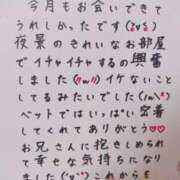 今月もお会いできて
うれしかったです(≧▽≦)
夜景のきれいなお部屋
でイチャイチャするの興奮
しました(//ω//)イケないこと
してるみたいでした(/ω＼)
ベットではいっぱい密着
してくれてありがとう♡♡
お兄さんに抱きしめられ
て幸せな気持ちになりな
ました(*´꒳`*)これからも